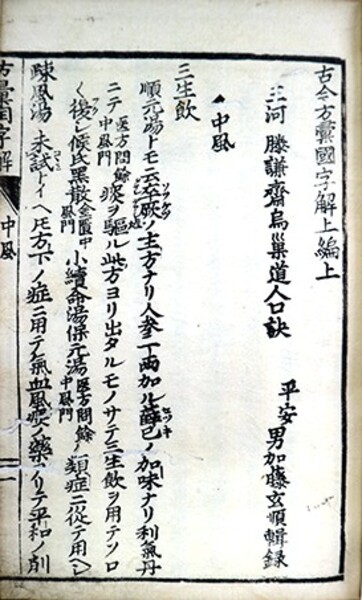 古今方彙國字解上編上
三河 滕謙齋烏巢道人口訣
平安 男加藤玄順輯録
中風
三生飲
順元湯トモ云卒厥ノ主方ナリ人参一両加ル薛已ノ加味ナリ利氣丹
醫方問餘中風門
ニテ痰ヲ驅ル此方ヨリ出タルモノサテ三生飲ヲ用テソロ
ク後レ候氏黒散 金匱中風門 小續命湯保元湯 醫方問餘中風門 ノ類症ニ從テ用ヘシ
疎風湯 未試トイヘ𪜈方下ノ症ニ用テ氣血風痰ノ藥ソロイテ平和ノ劑
方彙國字解
中風
一